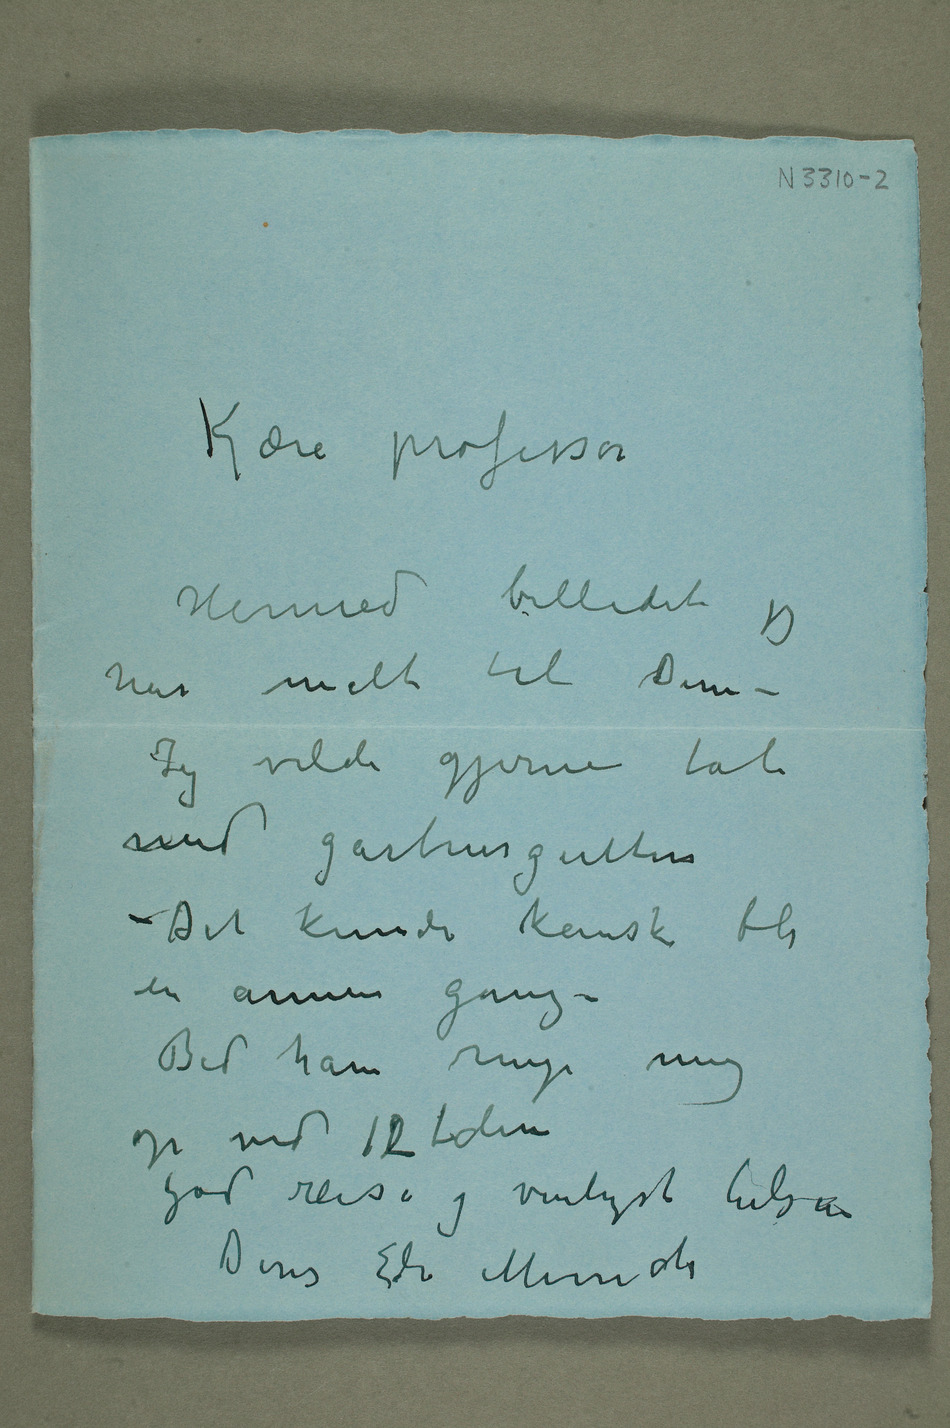 N 3310-2
Kjære professor
Hermed billedet jeg
har malt til Dem –
Jeg vilde gjerne tale
med gartnergutten
– Det kunde kanske bli
en annen gang –
Bed ham ringe mig
op ved 12 tiden
God reise og venligst hilsen
Deres Edv Munch